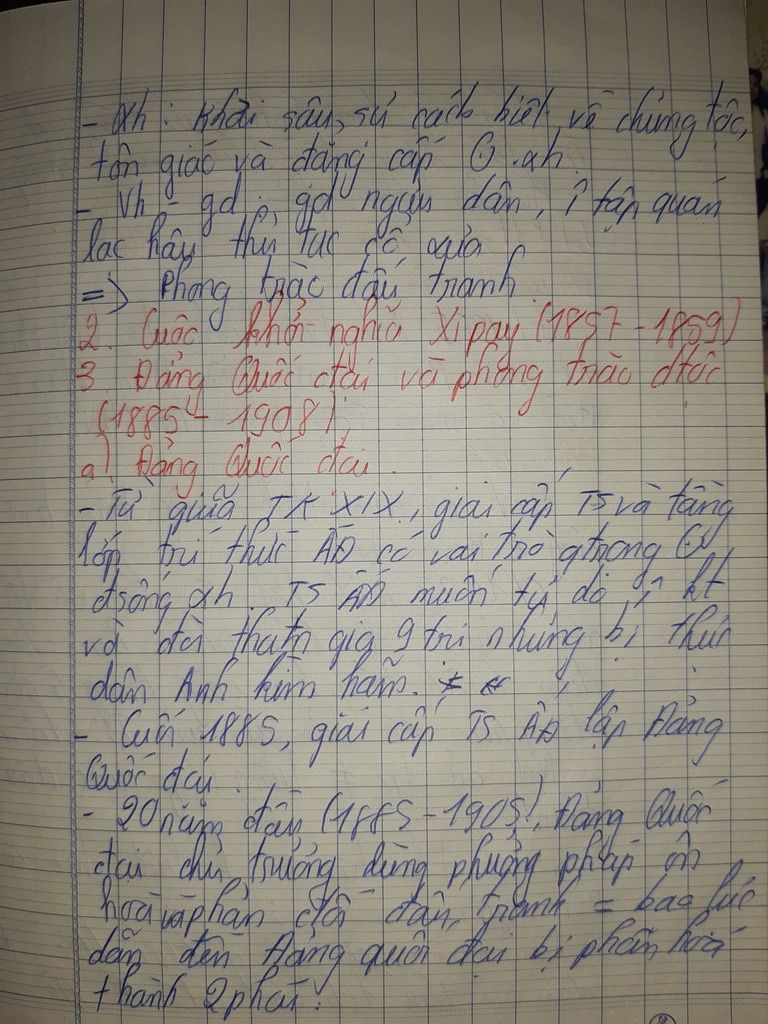 - xh : Khơi sâu sự cách biệt về chủng tộc,
tôn giáo và đẳng cấp ⊙ xh
- Vh - gd : gd ngu dân, ↑ tập quán
lạc hậu thủ tục cổ xưa
=> Phong trào đấu tranh
2. Cuộc khởi nghĩa Xipay (1857 - 1859)
3. Đảng Quốc đại và phong trào dtộc
(1885 - 1908),
a) Đảng Quốc đại.
- Từ giữa TK XIX, giai cấp TS và tầng
lớp trí thức ÂĐ có vai trò qtrọng ⊙
đsống xh. TS ÂĐ muốn tự do ↑ kt
và đòi tham gia 9 trị nhưng bị thực
dân Anh kìm hãm.
- Cuối 1885, giai cấp TS ÂĐ lập Đảng
Quốc đại.
- 20 năm đầu (1885 - 1905), Đảng Quốc
đại chủ trương dùng phương pháp ôn
hoà và phản đối đấu tranh = bạo lực
dẫn đến Đảng quốc đại bị phân hoá
thành 2 phái :